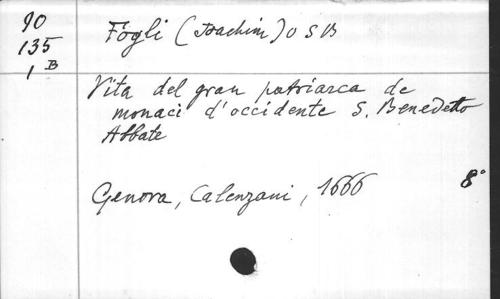 90
135
1 B
Fögli (Joachim) O S B
Vita del gran patriarca de
monaci d'occidente S. Benedetto
Abbate
Genova, Calenzani, 1666 8°